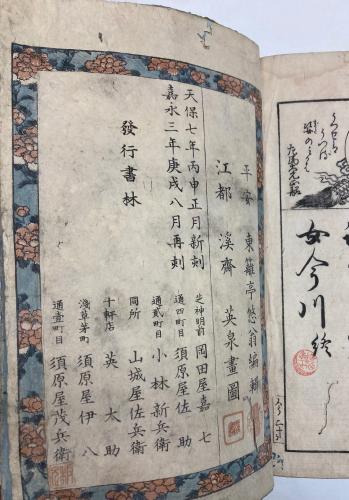 女今川終
平安 東籬亭悠翁編輯
江都 溪齋 英泉畫圖
天保七年丙申正月新刻
嘉永三年庚戌八月再刻
發行書林
芝神明前 岡田屋嘉七
通四町目 須原屋佐助
通貳町目 小林新兵衛
同所 山城屋佐兵衛
十軒店 英太助
淺草茅町 須原屋伊八
通壹町目 須原屋茂兵衛